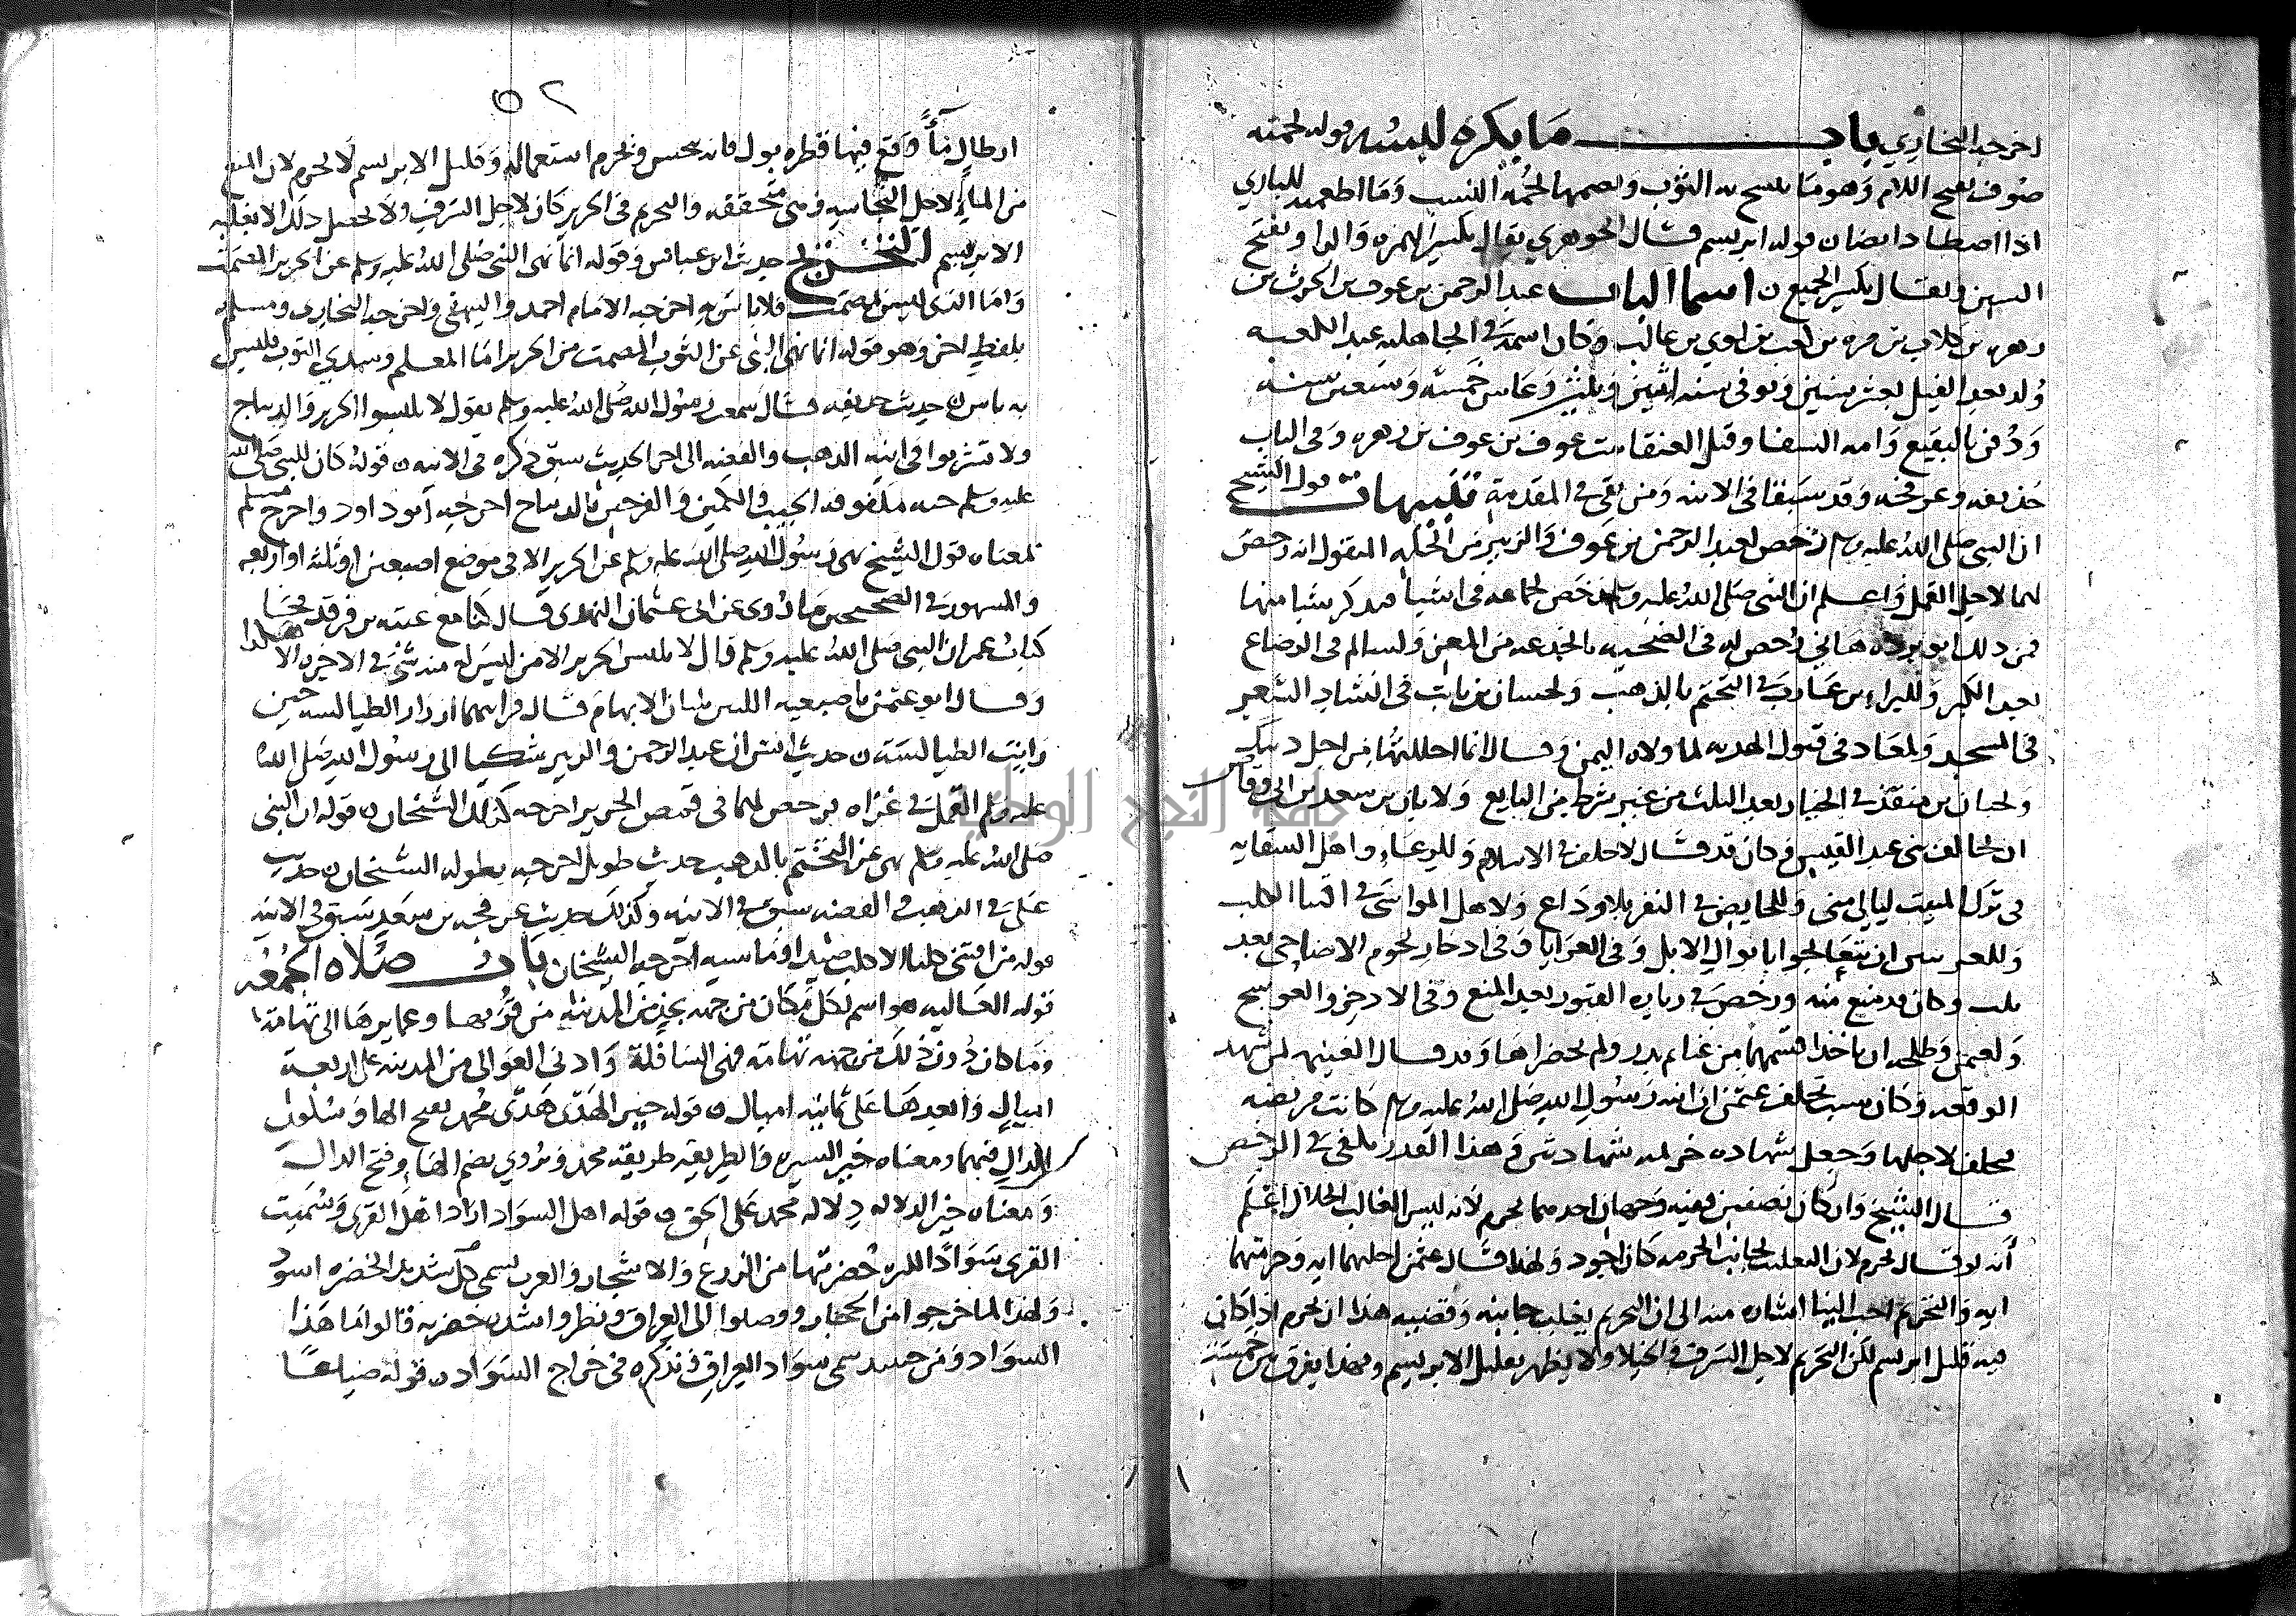 اخرجه البخاري باب ما يكره لبسه قوله لحمته
صوف بفتح اللام وهو ما ينسج به الثوب وبضمها لحمه النسب وما اطعمته للبازي
اذا اصطاد ايضا ن قوله ابريسم قال الجوهري يقال بكسر الهمزه والرا وبفتح
السين ويقال بكسر الجميع ن اسما الباب عبد الرحمن بن عوف بن الحرث بن
زهره بن كلاب بن مره بن كعب بن لوي بن غالب وكان اسمه في الجاهليه عبد الكعبه
ولد بعد الفيل بعشر سنين وتوفي سنه اثنين وثلثين وعاش خمسه وسبعين سنه
ودفن بالبقيع وامه الشفا وقيل العنقا بنت عوف بن عوف بن زهره وفي الباب
حذيفه وعرفجه وقد سبقا في الانيه ومن بقي في المقدمة تنبيهات قول الشيخ
ان النبي صلى الله عليه وسلم رخص لعبد الرحمن بن عوف والزبير من الحكه المنقول انه رخص
لهما لاجل القمل واعلم ان النبي صلى الله عليه وسلم رخص لجماعه في اشيا فيذكر شيا منها
فمن ذلك ابو برده هاني رخص له في الضحيه بالجذعه من المعز ولسالم في الرضاع
بعد الكبر وللبراء بن عازب في التختم بالذهب ولحسان بن ثابت في انشاد الشعر
في المسجد ولمعاذ في قبول الهديه لما ولاه اليمن وقال انما احللتها من اجل دينك
ولحبان بن منقذ في الخيار بعد الثلث من غير شرط من البايع ولابان بن سعد بن ابي وقاص
ان يحالف بني عبد القيس وكان قد قال لا حلف في الاسلام وللرعاء واهل السقايه
في ترك المبيت ليالي منى وللحايض في النفر بلا وداع ولاهل المواشي في اقتنا الكلب
بابوال الابل وفي العرايا وفي ادخار لحوم الاضاحي بعد
ثلث وكان قد منع منه ورخص في زياره القبور بعد المنع وفي الاذخر والعوسج
ولعثمن وطلحه ان ياخذا قسمهما من غنايم بدر ولم يحضراها وقد قال الغنيمه لمن شهد
الوقعه وكان سبب تخلف عثمن ان ابنه رسول الله صلى الله عليه وسلم كانت مريضه
فتخلف لاجلها وجعل شهاده خزيمه شهادتين وهذا القدر يكفي في الرخص
قال الشيخ وان كان نصفين ففيه وجهان احدهما يحرم لانه ليس الغالب الحلال اعلم
انه لو قال يحرم لان التغليب لجانب الحرمه كان اجود ولهذا قال عثمن احلتهما ايه وحرمتهما
ايه والتحريم احب الينا اشاره منه الى ان التحريم يغلب جانبه وقضيه هذا ان يحرم اذا كان
فيه قليل ابريسم لكن التحريم لاجل السرف والخيلا ولا يظهر بقليل الابريسم وبهذا يفرق بين خمسمئه
٥٢
ارطال ماء وقع فيها قطره بول فانه نجس ويحرم استعماله وقليل الابريسم لا يحرم لان المنع
من الماء لاجل النجاسه وهي متحققه والتحريم في الحرير كان لاجل السرف ولا يحصل ذلك الا بغلبه
الابريسم التخريج حديث ابن عباس وقوله انما نهى النبي صلى الله عليه وسلم عن الحرير المصمت
واما الذي ليس بمصمت فلا باس به اخرجه الامام احمد والبيهقي واخرجه البخاري ومسلم
بلفظ اخر وهو قوله انما نهى النبي عن الثوب المصمت من الحرير اما المعلم وسدي الثوب فليس
به باس ن حديث حذيفه قال سمعت رسول الله صلى الله عليه وسلم يقول لا تلبسوا الحرير والديباج
ولا تشربوا في انيه الذهب والفضه الى اخر الحديث سبق ذكره في الانيه ن قوله كان للنبي صلى الله
عليه وسلم جبه مكفوفه الجيب والكمين والفرجين بالديباج اخرجه ابو داود واخرج مسلم
بمعناه قول الشيخ نهى رسول الله صلى الله عليه وسلم عن الحرير الا في موضع اصبعين او ثلثه او اربعه
والمشهور في الصحيحين ما روي عن ابي عثمان النهدي قال كنا مع عتبه بن فرقد فجا
كتاب عمر ان النبي صلى الله عليه وسلم قال لا يلبس الحرير الا من ليس له منه شي في الاخره الا هكذا
وقال ابو عثمن باصبعيه اللتين تليان الابهام قال فرايتهما ازرار الطيالسه حين
رايت الطيالسة ن حديث انس ان عبد الرحمن والزبير شكيا الى رسول الله صلى الله
عليه وسلم القمل في غزاه فرخص لهما في قميص الحرير اخرجه كذلك الشيخان ن قوله ان النبي
صلى الله عليه وسلم نهى عن التختم بالذهب حديث طويل اخرجه بطوله الشيخان ن حديث
علي في الذهب والفضه سبق في الانيه وكذلك حديث عرفجه بن سعد سبق في الانيه
قوله من اقتنى كلبا الا كلب صيد او ماشيه اخرجه الشيخان باب صلاه الجمعه
قوله العاليه هو اسم لكل مكان من جهه نجد من المدينه من قراها وعمايرها الى تهامة
وما كان دون ذلك من جهه تهامة فهي السافلة وادنى العوالي من المدينه على اربعة
اميال وابعدها على ثمانيه اميال ن قوله خير الهدى هدى محمد بفتح الها وسكون
الدال فيهما ومعناه خير السيره والطريقه طريقه محمد وروي بضم الها وفتح الدال
ومعناه خير الدلاله دلاله محمد على الحق ن قوله اهل السواد اراد اهل القرى وسميت
القرى سوادا لكثره خضرتها من الزرع والاشجار والعرب تسمي كل شديد الخضره اسود
ولهذا لما خرجوا من الحجاز ووصلوا الى العراق ونظروا شده خضرته قالوا ما هذا
السواد ومن حينئذ سمي سواد العراق ونذكره في خراج السواد ن قوله ضياعا
جامعة النجاح الوطنية